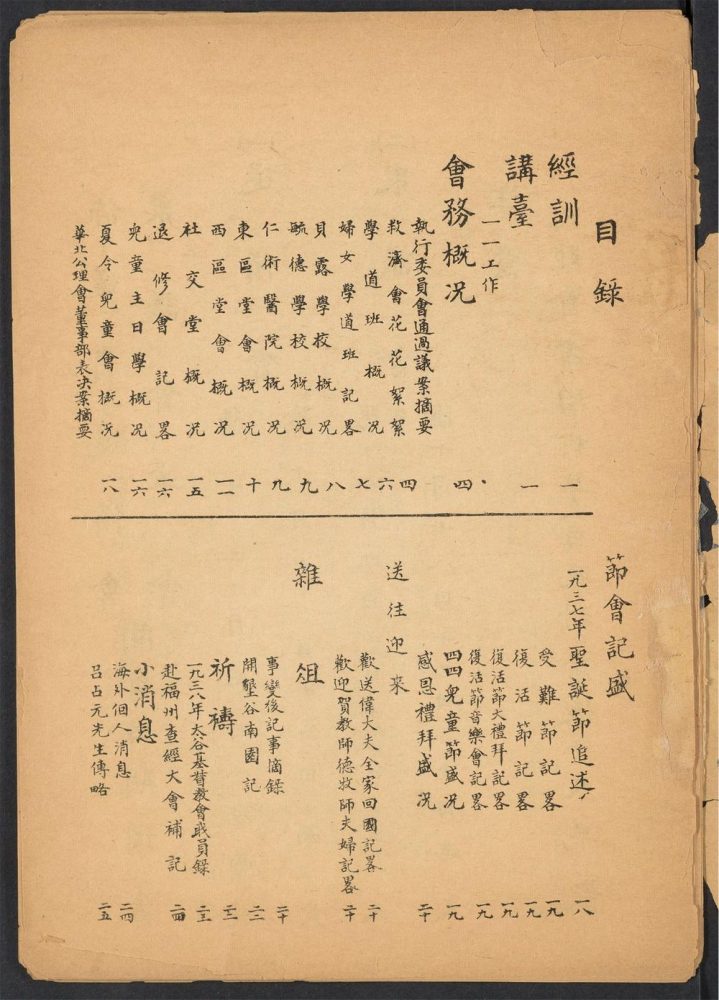 目錄
經訓 一
講臺 一
一一工作
會務概況 四
執行委員會通過議案摘要
救濟會花花絮絮 四
學道班概況 六
婦女學道班記畧 七
貝露學校概况 八
毓德學校概况 九
仁術醫院概况 九
東區堂會概况 十
西區堂會概况 一一
社交堂概况 一五
退修會記畧 一六
兒童主日學概况 一六
夏令兒童會概况 一八
華北公理會董事部表決案摘要
節會記盛
一九三七年聖誕節追述 一八
受難節記畧 一九
復活節記畧 一九
復活節大禮拜記畧 一九
復活節音樂會記畧 一九
四四兒童節盛况 一九
感恩禮拜盛况 二十
送往迎來
歡送偉大夫全家回國記畧 二十
歡迎賀教師德牧師夫婦記畧 二十
雜俎
事變後記事摘錄 二十
開墾谷南園記 二二
祈禱 二三
一九三八年太谷基督教會職員錄 二三
赴福州查經大會補記 二四
小消息
海外個人消息 二四
呂占元先生傳略 二五